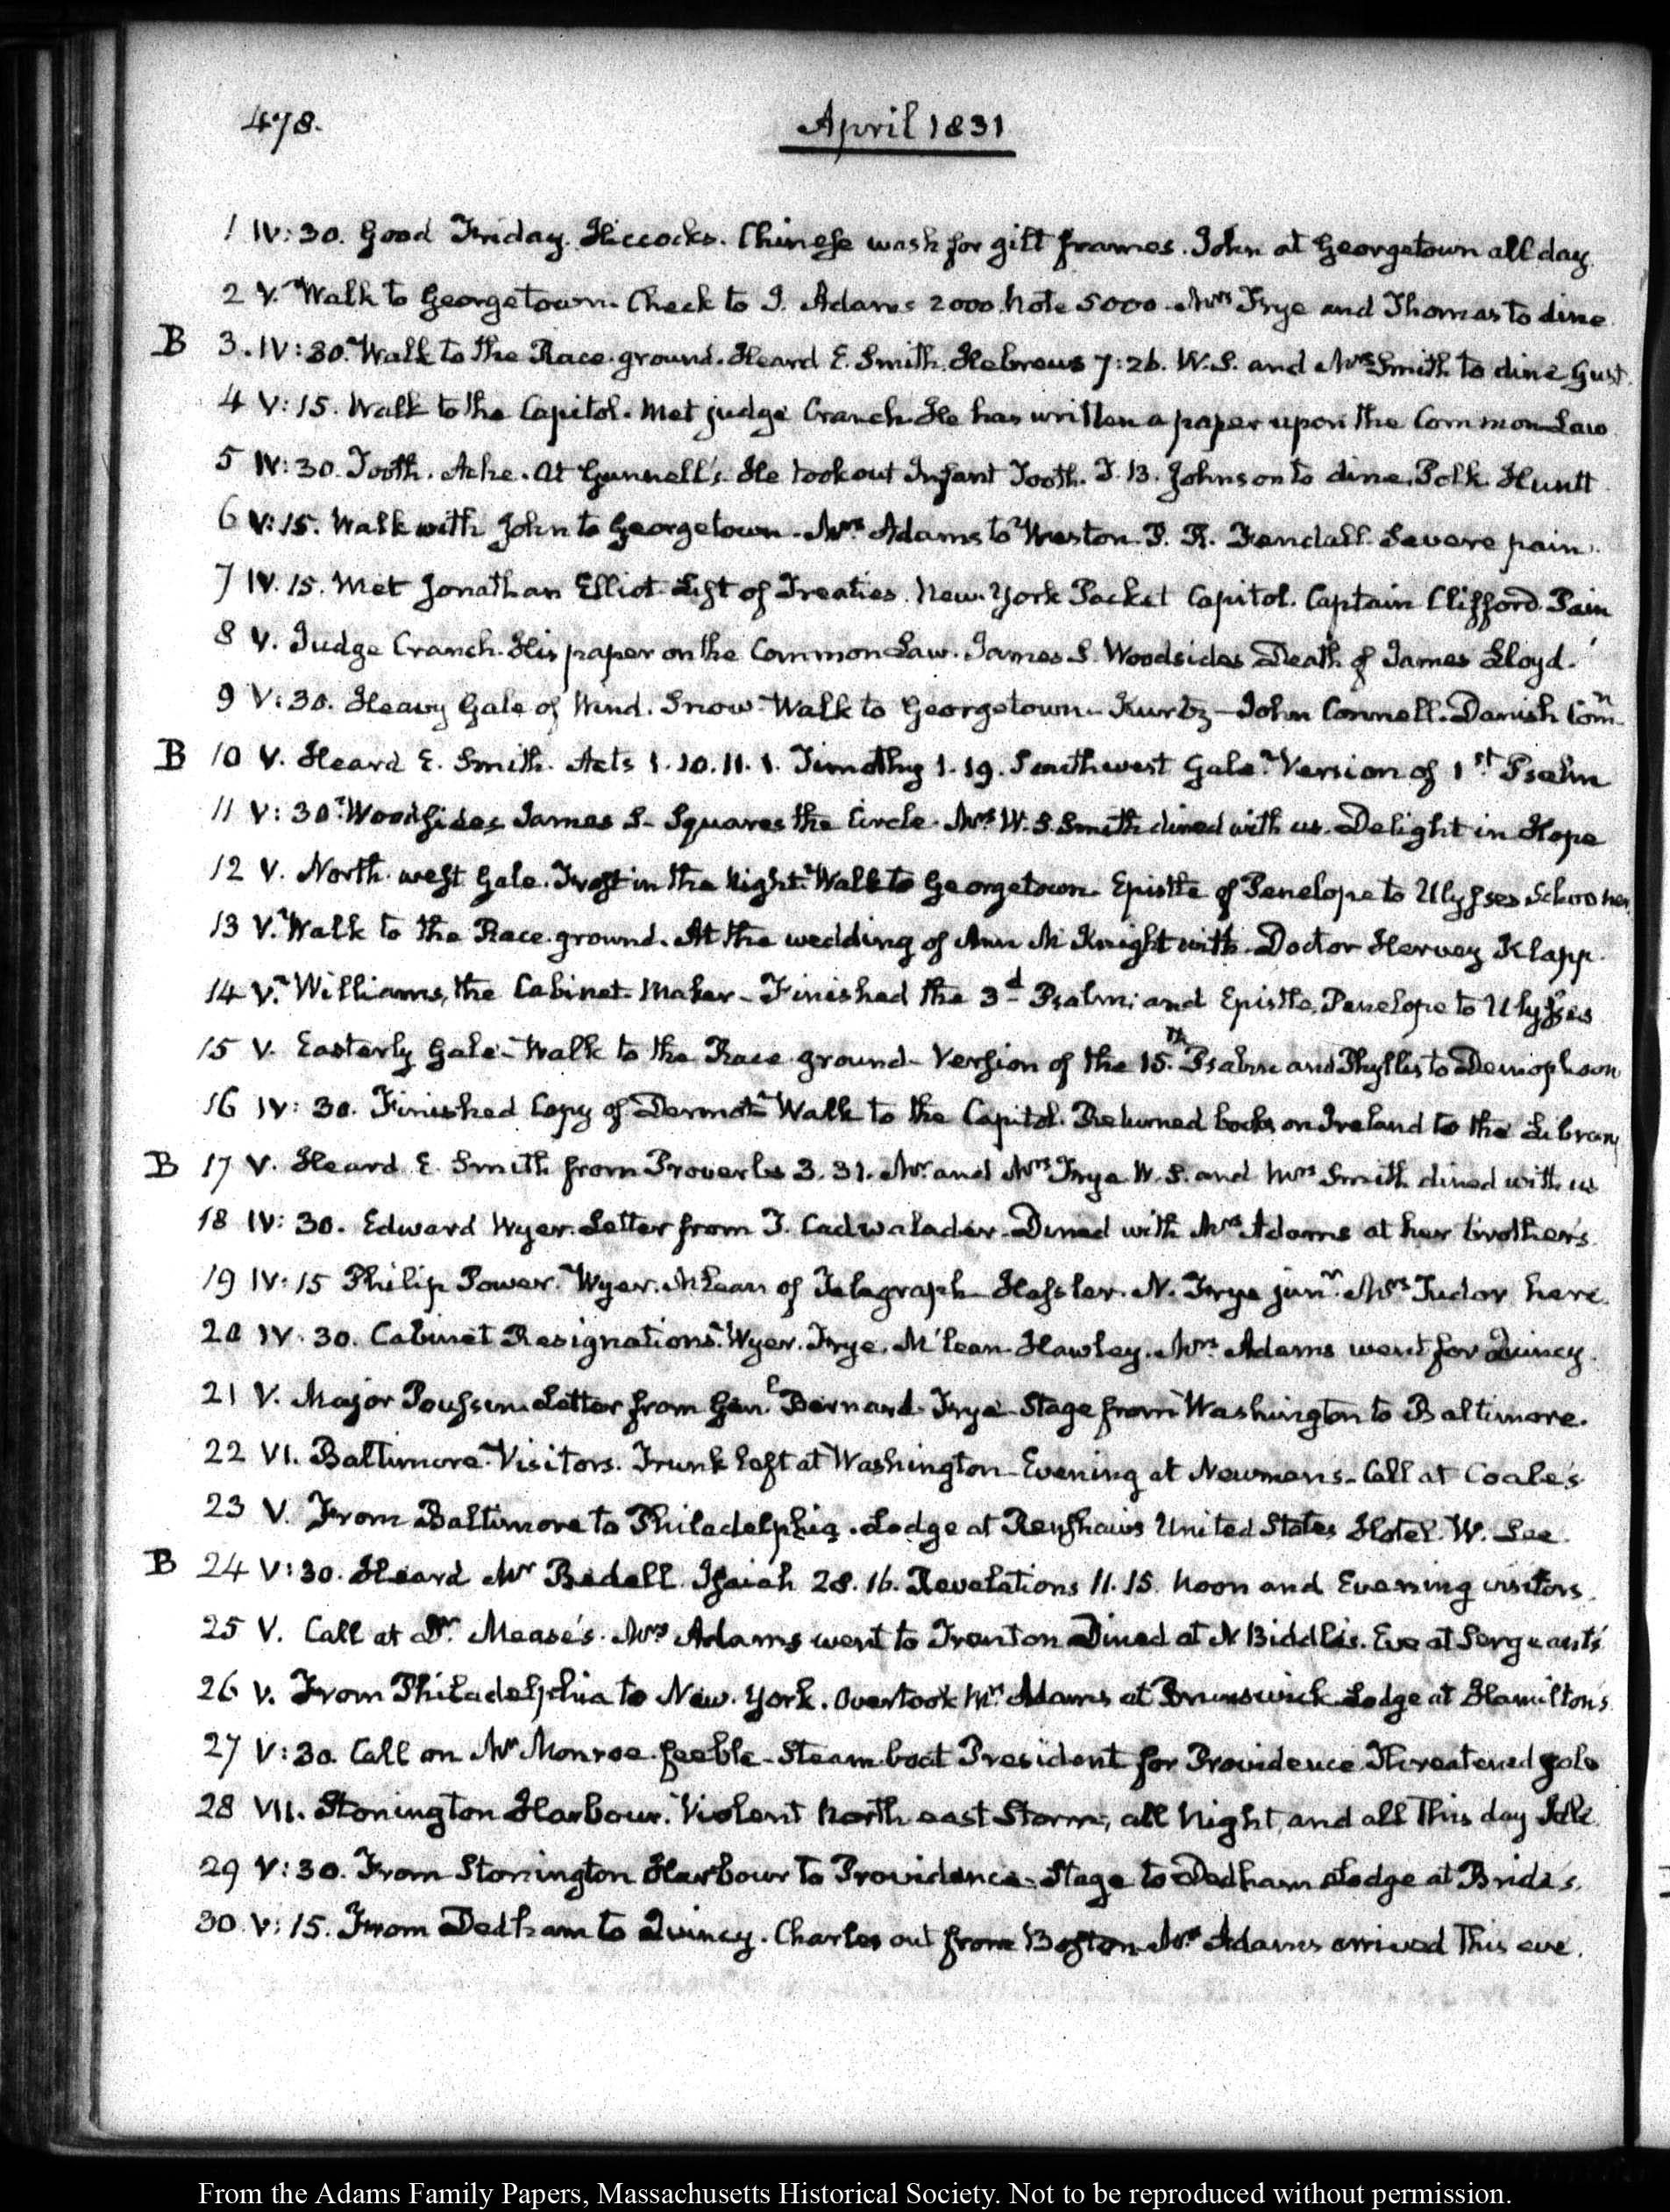 478.
April 1831
1 IV:30. Good Friday. Hiccocks. Chinese wash for gilt frames. John at Georgetown all day.
2 V. Walk to Georgetown. Check to J. Adams 2000. Note 5000. Mrs Frye and Thomas to dine.
B 3. IV:30. Walk to the Race ground. Heard E. Smith. Hebrews 7:26. W.S. and Mrs Smith to dine. Gust.
4 V:15. Walk to the Capitol. Met judge Cranch. He has written a paper upon the Common Law
5 IV:30. Tooth. Ache. At Gunnell's. He took out Infant Tooth. T. B. Johnson to dine. Polk. Huntt
6 V:15. Walk with John to Georgetown. Mrs Adams to Weston. P. R. Fendall. Severe pain.
7 IV.15. Met Jonathan Elliot. List of Treaties. New-York Packet Capitol. Captain Clifford. Pain
8 V. Judge Cranch. His paper on the Common Law. James S. Woodsides Death of James Lloyd.
9 V:30. Heavy Gale of Wind. Snow. Walk to Georgetown. Kurtz—John Connell. Danish Comn
B 10 V. Heard E. Smith. Acts 1.10.11. 1. Timothy 1.19. Southwest Gale. Version of 1st Psalm
11 V:30. Woodsides James S. Squares the Circle. Mrs W. S. Smith dined with us. Delight in Hope
12 V. North west Gale. Frost in the Night. Walk to Georgetown. Epistle of Penelope to Ulysses Schooner
13 V. Walk to the Race ground. At the wedding of Ann M Knight with Doctor Hervey Klapp.
14 V. Williams, the Cabinet-Maker—Finished the 3d Psalm; and Epistle, Penelope to Ulysses
15 V. Easterly Gale—Walk to the Race ground—Version of the 15th Psalm and Phyllis to Demophoon
16 IV:30. Finished Copy of Dermot. Walk to the Capitol. Returned books on Ireland to the Library
B 17 V. Heard E. Smith from Proverbs 3.31. Mr and Mrs Frye W. S. and Mrs Smith dined with us
18 IV:30. Edward Wyer. Letter from T. Cadwalader. Dined with Mrs Adams at her brother's.
19 IV:15 Philip Power. Wyer. McLean of Telegraph. Hassler. N. Frye junr. Mrs Tudor here.
20 IV.30. Cabinet Resignations. Wyer. Frye. M'lean. Hawley. Mrs Adams went for Quincy.
21 V. Major Poussin. Letter from Genl Bernard. Frye. Stage from Washington to Baltimore.
22 VI. Baltimore. Visitors. Trunk left at Washington. Evening at Newmans. Call at Coale's
23 V. From Baltimore to Philadelphia. Lodge at Renshaw's United States Hotel. W. Lee.
B 24 V:30. Heard Mr Bedell. Isaiah 28.16. Revelations 11.15. Noon and Evening visitors.
25 V. Call at Dr Mease's. Mrs Adams went to Trenton. Dined at N Biddle's. Eve at Sergeant's
26 V. From Philadelphia to New-York. Overtook Mrs Adams at Brunswick. Lodge at Hamilton's
27 V:30. Call on Mr Monroe. feeble—Steam boat President for Providence. Threatened gale
28 VII. Stonington Harbour. Violent North east Storm, all Night, and all This day Idle.
29 V:30. From Stonington Harbour to Providence. Stage to Dedham Lodge at Bride's.
30. V:15. From Dedham to Quincy. Charles out from Boston. Mrs Adams arrived This eve.
From the Adams Family Papers, Massachusetts Historical Society. Not to be reproduced without permission.